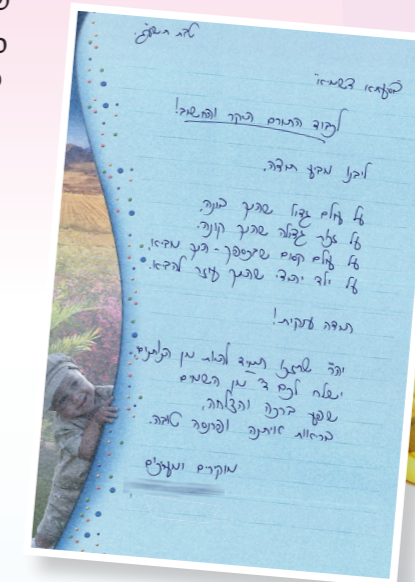 טבת תשע"ג.
בסיעתא דשמיא
לכבוד התורם היקר והחשוב!
ליבנו מביע תודה,
על עולם גדול שהנך בונה,
על זכות גדולה שהנך קונה,
על עולם קסום שבכספך - הנך מביא,
על ילד יהודי שהנך עוזר להביא.
תודה ענקית!
יה"ר שתזכו תמיד להיות מן הנותנים,
ישלח לכם ד' מן השמים
שפע ברכה והצלחה,
בריאות איתנה ופרנסה טובה.
מוקירים ומעריכים